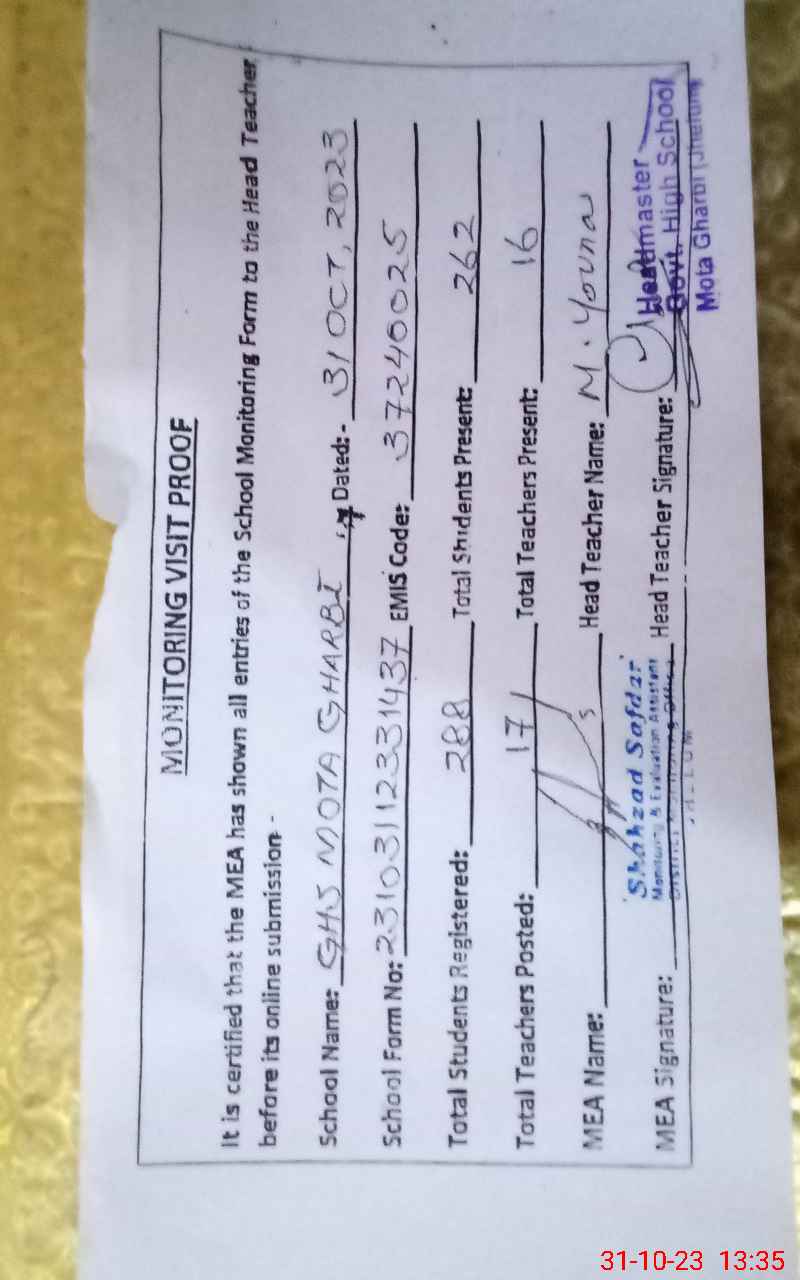 MONITORING VISIT PROOF
It is certified that the MEA has shown all entries of the School Monitoring Form to the Head Teacher
before its online submission -
School Name: GHS MOTA GHARBI Dated: - 31 OCT, 2023
School Form No: 23103112331437 EMIS Code: 37240025
Total Students Registered: 288 Total Students Present: 262
Total Teachers Posted: 17 Total Teachers Present: 16
MEA Name: Head Teacher Name: M. Youna
Shahzad Safdar
Monitoring & Evaluation Assistant
District Monitoring Office
MEA Signature: Head Teacher Signature:
Headmaster
Govt. High School
Mota Gharbi (Jhelum)
31-10-23 13:35